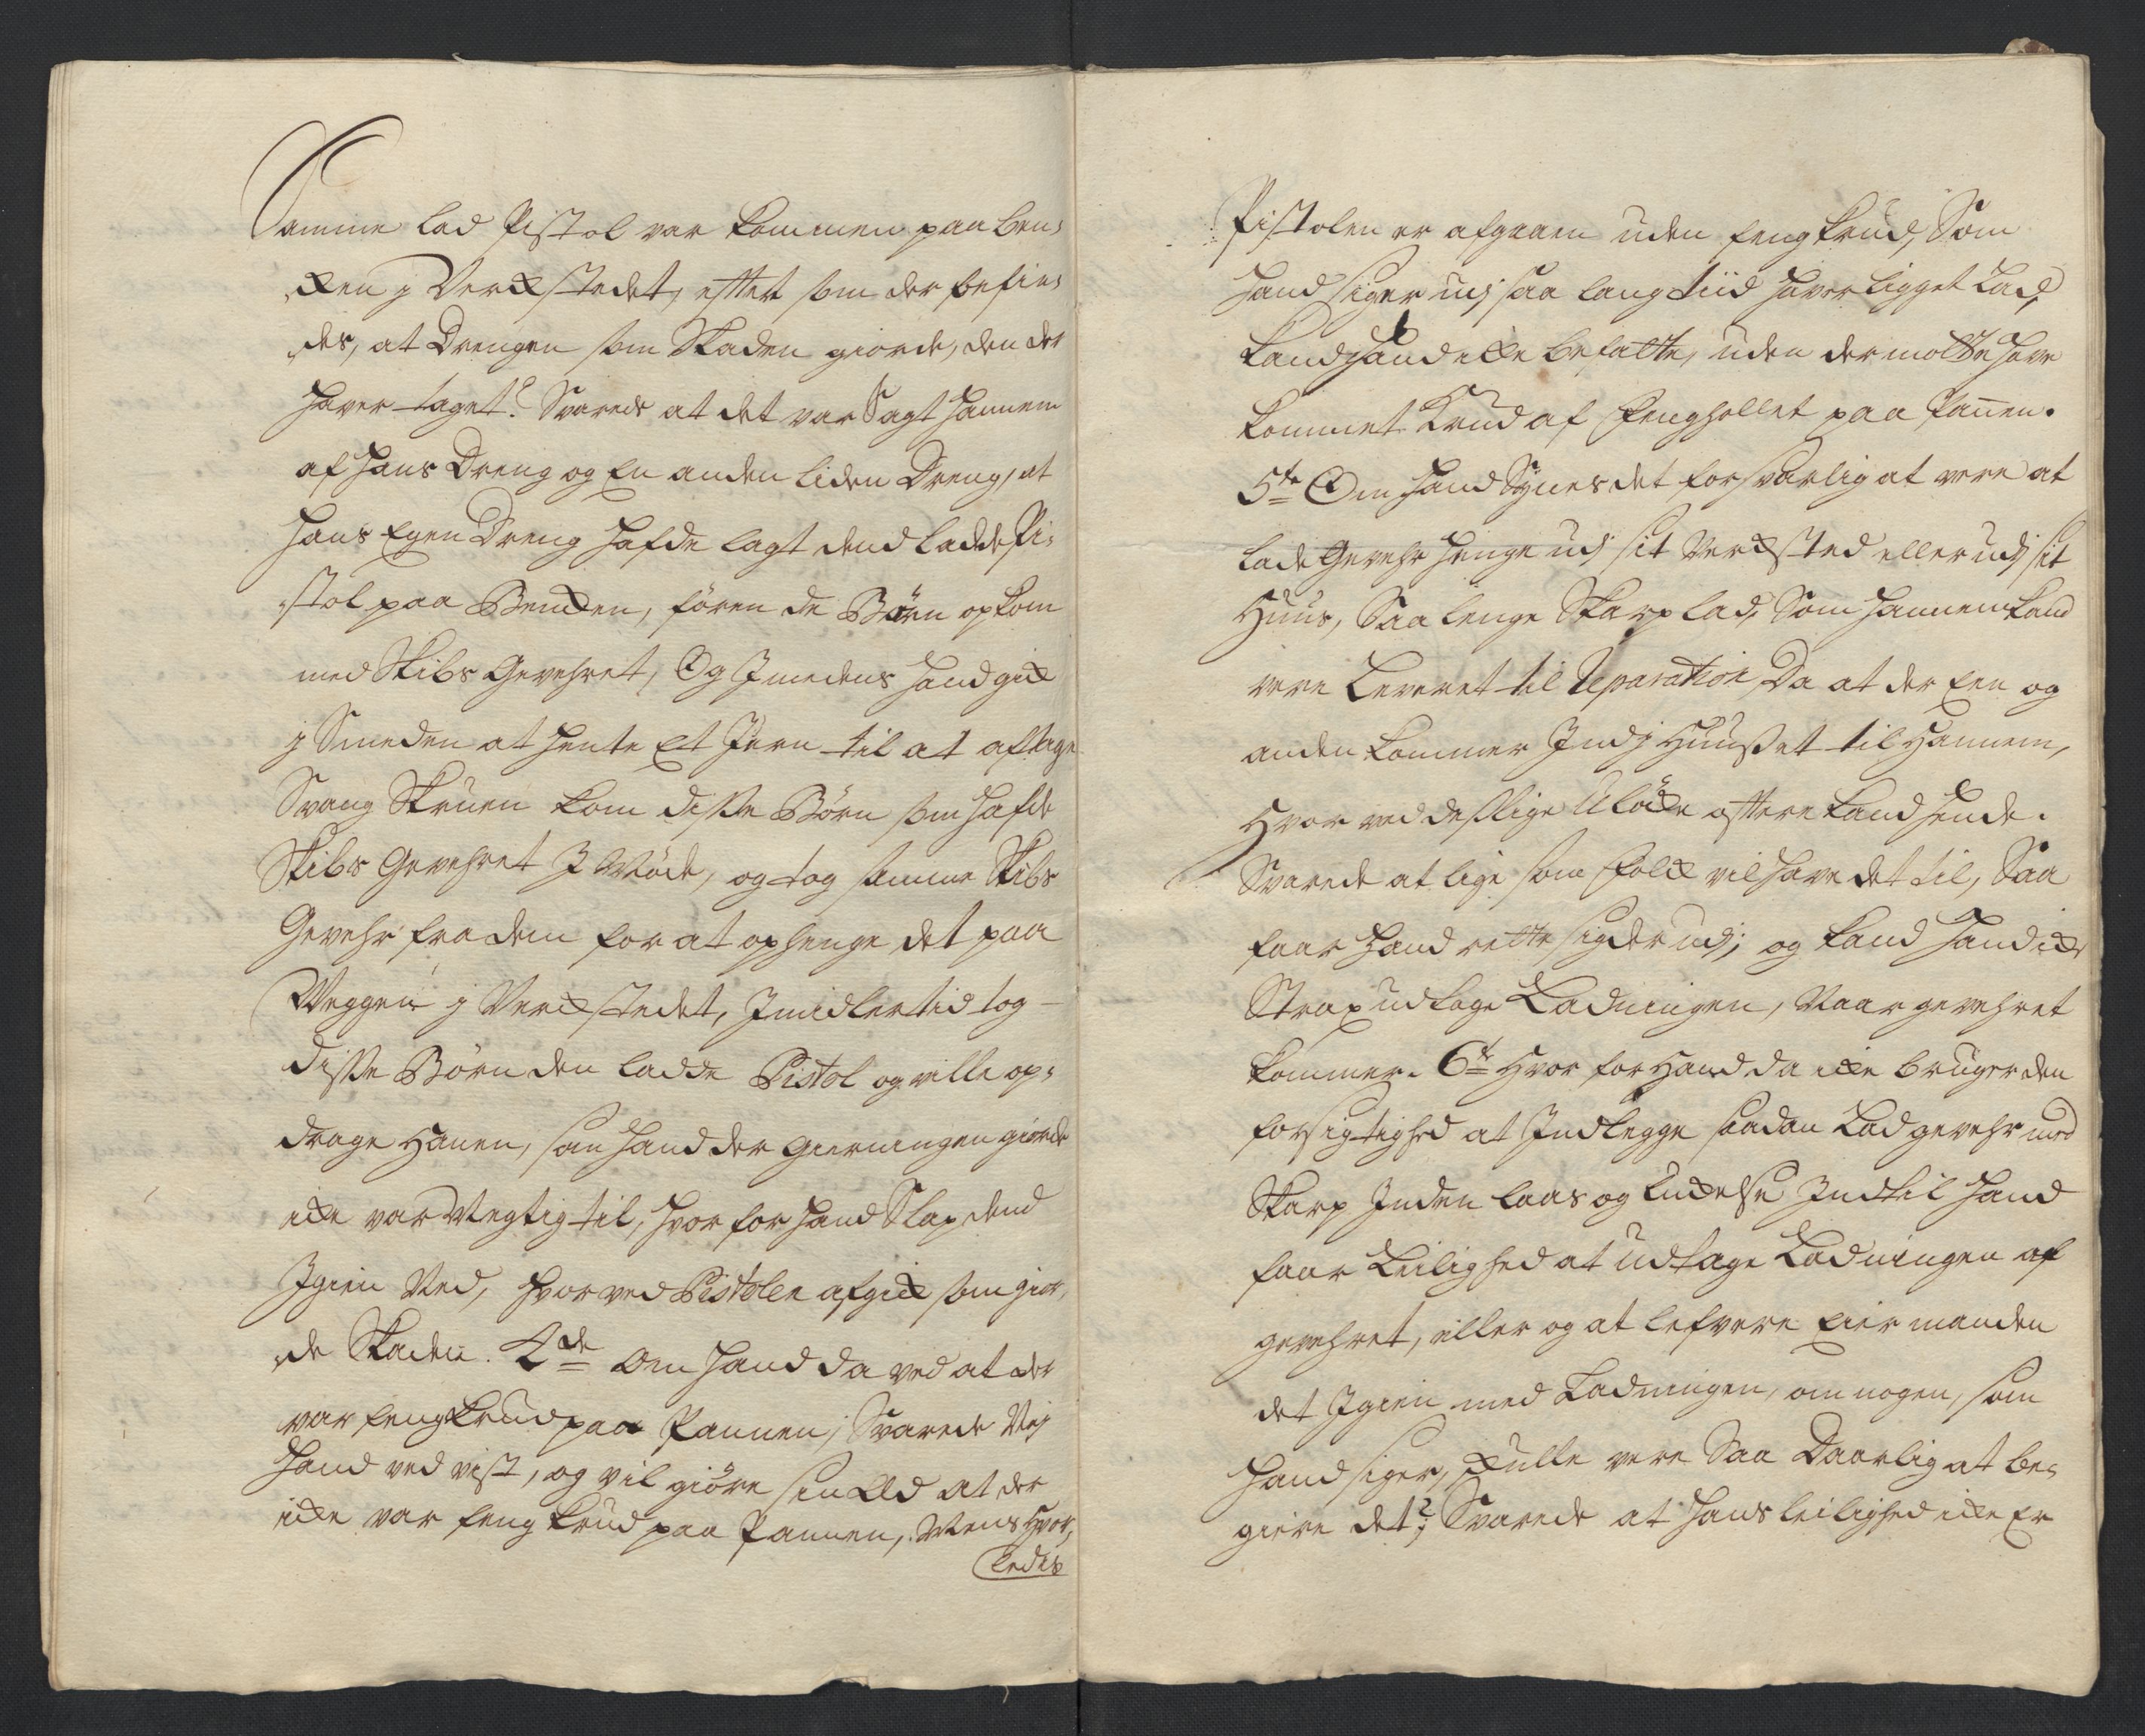 Samme lad Pistol var kommen paa Ben,
ken j Verckstedet, effter som der befin,
des, at Drengen som Skaden giorde, den der
haver taget? Svarede at det var Sagt hannem
af hans Dreng og En anden liden Dreng, at
hans Egen Dreng hafde lagt dend ladde Pi,
stol paa Bencken, förren de Börn op kom
med Skibs Gevehret, Og Jmedens hand gick
j Smeden at hente Et Jern til at aftage
Svang Skruen kom disse Börn som hafde
Skibs Gevehret J Möde, og tog samme Skibs
Gevehr fra dem for at ophenge det paa
Veggen j Verckstedet, Jmidlertid tog
disse Börn den ladde Pistol og ville op,
drage Hanen, som hand der Gierningen giorde
icke var Megtig til, hvor for hand Slap dend
Jgien Ned, hvor ved Pistolen afgick som gior,
de Skaden. 4de Om hand da ved at der
var fengkrud paa Pannen; Svarede Nej
hand ved vist, og vil giöre sin Æd at der
icke var fengkrud paa Pannen, Mens hvor,
ledes
Pistolen er afgaaen uden fengkrud, Som
hand siger udj saa lang tiid haver ligget Lad,
kand hand icke befatte, uden der motte have
kommet Krud af Fenghollet paa Pannen.
5te Om hand Synes det forsvarlig at vere at
lade Gevehr henge udj sit Verchsted eller udj sit
Huus, Saa lenge Skarp lad, Som hannem kand
vere Leveret til Reparation, Da at der Een og
anden kommer Jnd j Huuset til Hannem,
Hvor ved deslige Ulöcke offtere kand hende.
Svarede at lige som Folck vil have det til, Saa
faar hand rette sig der udj; og kand hand icke
Strax udtage Ladningen, Naar gevehret
kommer. 6te Hvor for Hand da icke bruger den
forsigtighed at Jndlegge saadan Lad gevehr med
Skarp Jnden laas og luckelse Jndtil hand
faar Leilighed at udtage Ladningen af
gevehret, eller og at lefvere Eiermanden
det Jgien med Ladningen, om nogen, som
hand siger, skulle vere Saa Daarlig at be,
giere det?; Svarede at hans leilighed icke Er